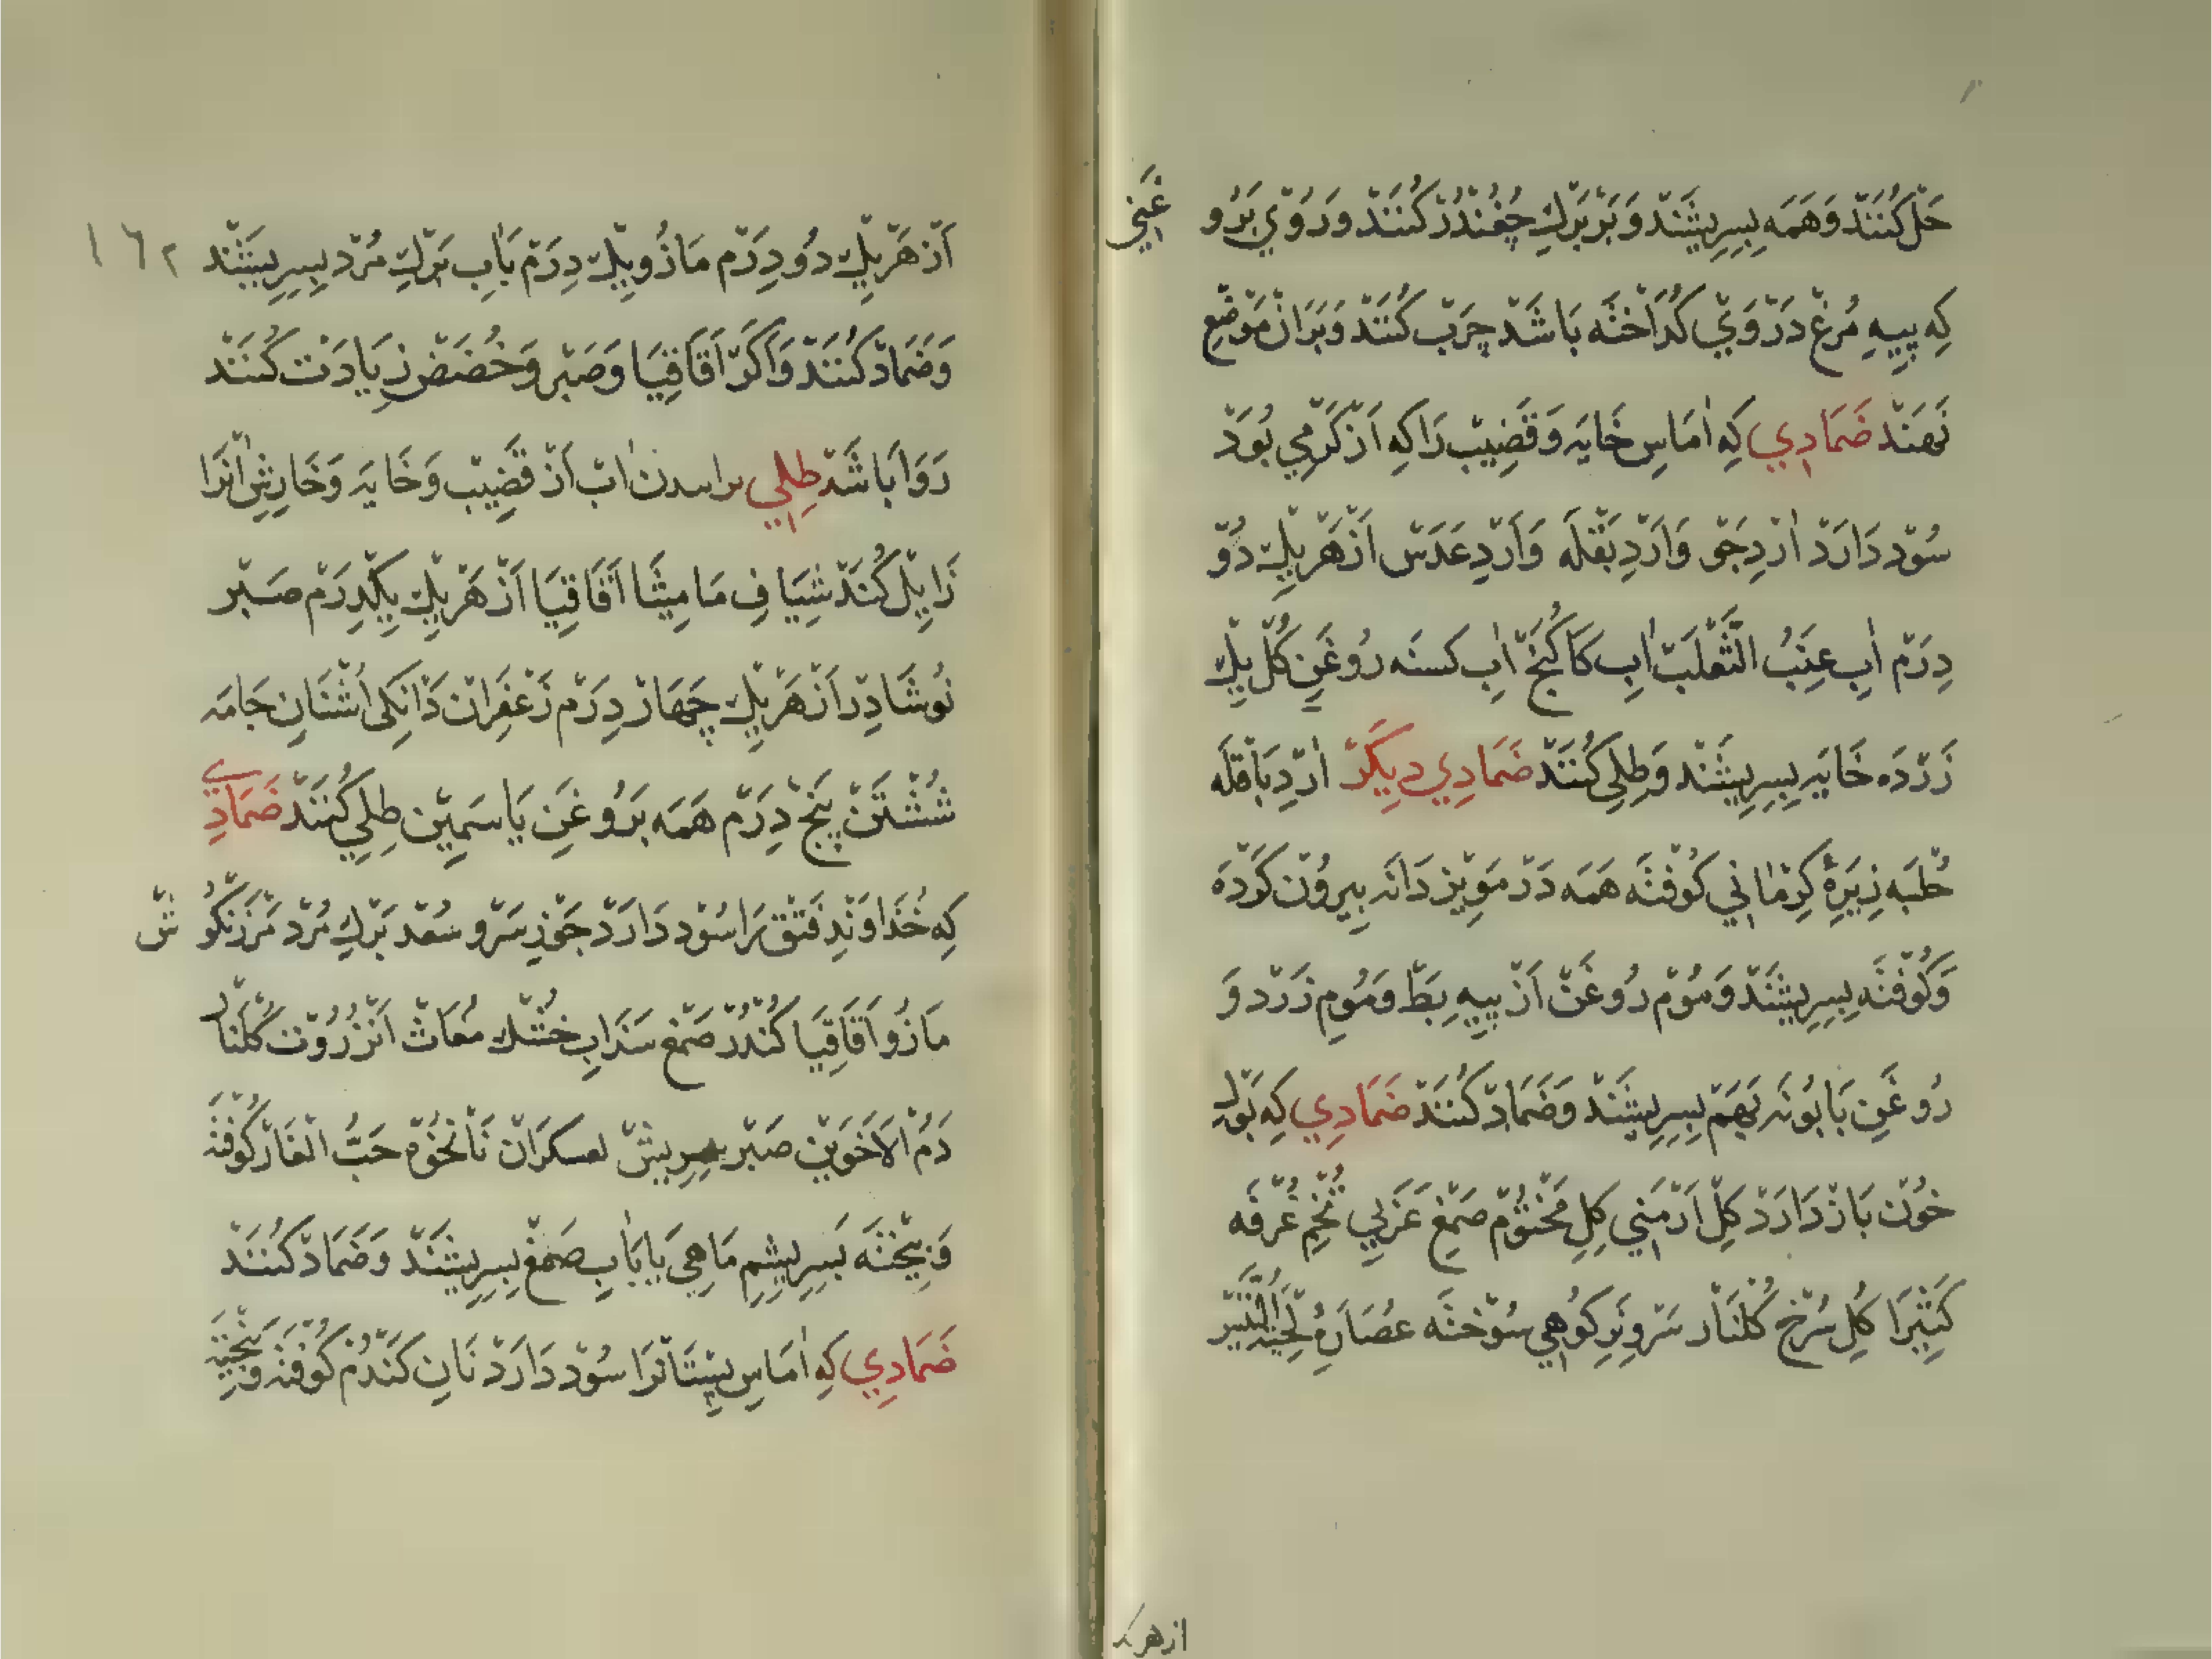 حَلْ كُنَنَدْ وَهَمَه بِسِرِیشَنْد وَبَرْ بَرْكِ چُغُنْدُرْ كُنَنَدْ وَرُوْیْ بَرُو غَنِي
كِه پِیهِ مُرغْ دَرْ وَيْ كُدَاخْتَه بَاشَدْ چَرَبْ كُنَنَدْ وَبَرَانْ مَوْضِعِ
نَهَنْد ضَمَادِي كِه اٰمَاسِ خَایَه وَقَضِیْب رَا كِه اَزْ كَرْمِي بُوَدْ
سُوْد دَارَدْ اٰرْدِ جَوْ وَاٰرْدِ بَقْلَه وَاٰرْدِ عَدَسْ اَزْ هَرْیِكْ دُوْ
دِرَمْ اٰبِ عِنَبُ الثَّعْلَبْ اٰبِ كَاكُنَجْ اٰبِ كسنه رُوغَنِ كُلْ یِكْ
زَرْدَه خَایَه بِسِرِیشَنْد وَطِلِي كُنَنَدْ ضَمَادِي دِیكَرْ اٰرْدِ بَاقْلَه
حُلْبَه زِیرَهٔ كِرْمَانِي كُوفْتَه هَمَه دَرْ مَوِیْز دَانَه بِیرُوْن كَرْدَه
وَكُوْفْتَه بِسِرِیشَنَدْ وَمُوْم رُوغَنْ اَزْ پِیهِ بَطّ وَمُوْمِ زَرْد وَ
رُوغَنِ بَابُونَه بَهَمْ بِسِرِیشَنْد وَضَمَادْ كُنَنَدْ ضَمَادِي كِه بَوْلِ
خُوْن بَازْ دَارَدْ كِلْ اَرْمَنِي كِلِ مَخْتُوْم صَمْغِ عَرَبِي تُخْمِ خُرْفَه
كَتِیْرَا كُلِ سُرْخ كُلْنَار سَرْوِ بُزِ كُوهِي سُوْخْتَه عُصَارَهٔ لِحْیَةِ التَّیْسْ
ازهریك
١٦٢
اَزْ هَرْیِكْ دُو دِرَمْ مَازُو یِكْ دِرَمْ بَاٰبِ بَرْكِ مُرْد بِسِرِیشَنْد
وَضَمَادْ كُنَنَدْ وَاَكَرْ اَقَاقِیَا وَصَبْر وَحُضَضْ زِیَادَتْ كُنَنَدْ
رَوَا بَاشَدْ طِلِي اٰبْ اَزْ قَضِیْب وَخَایَه وَخَارِشِ اٰنْرَا
زَایِلْ كُنَدْ شِیَافِ مَامِیثَا اَقَاقِیَا اَزْ هَرْیِكْ یِكْدِرَمْ صَبْر
نُوشَادِر اَزْ هَرْیِكْ چَهَارْ دِرَمْ زَعْفَرَانْ دَانْكِی اُشْنَانِ جَامَه
شُسْتَنْ پَنْجْ دِرَمْ هَمَه بَرُوغَنِ یَاسَمِیْن طِلِي كُنَنَدْ ضَمَادِي
كِه خُدَاوَنْدِ فَتْقْ رَا سُوْد دَارَدْ جَوْزِ سَرْو سُعْد بَرْكِ مُرْد مَرْزَنْكُوشْ
مَازُو اَقَاقِیَا كُنْدُرْ صَمْغ سَدَابِ خُشْك مُغَاثْ اَنْزَرُوْت كُلْنَار
دَمُ الْاَخَوَیْن صَبْر سِرِیشْ نَانْخُوَهْ حَبُّ الْغَارْ كُوفْتَه
وَبِیْخْتَه بَسِرِیشِمِ مَاهِي یَا بَاٰبِ صَمْغ بِسِرِیشَنَدْ وَضَمَادْ كُنَنَدْ
ضَمَادِي كِه اٰمَاسِ پِسْتَانْرَا سُوْد دَارَدْ نَانِ كَنْدُمْ كُوفْتَه وَبِیخْتَه